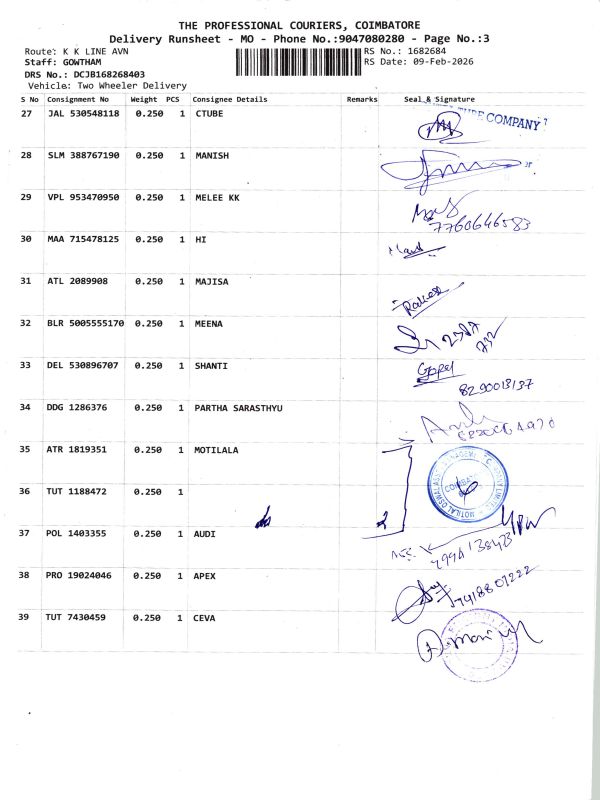 THE PROFESSIONAL COURIERS, COIMBATORE
Delivery Runsheet - MO - Phone No.:9047080280 - Page No.:3
Route: K K LINE AVN RS No.: 1682684
Staff: GOWTHAM RS Date: 09-Feb-2026
DRS No.: DCJB168268403
Vehicle: Two Wheeler Delivery
S No Consignment No Weight PCS Consignee Details Remarks Seal & Signature
27 JAL 530548118 0.250 1 CTUBE
COMPANY
28 SLM 388767190 0.250 1 MANISH
29 VPL 953470950 0.250 1 MELEE KK
7760646583
30 MAA 715478125 0.250 1 HI
31 ATL 2089908 0.250 1 MAJISA
Rakesh
32 BLR 5005555170 0.250 1 MEENA
33 DEL 530896707 0.250 1 SHANTI
Gopal
8290013137
34 DDG 1286376 0.250 1 PARTHA SARASTHYU
35 ATR 1819351 0.250 1 MOTILALA
36 TUT 1188472 0.250 1
2
37 POL 1403355 0.250 1 AUDI
38 PRO 19024046 0.250 1 APEX
7418807222
39 TUT 7430459 0.250 1 CEVA